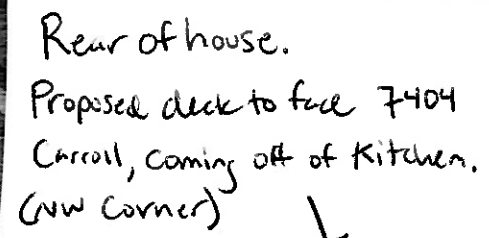 Rear of house.
Proposed deck to face 7404
Carroll, coming off of Kitchen.
(NW Corner)